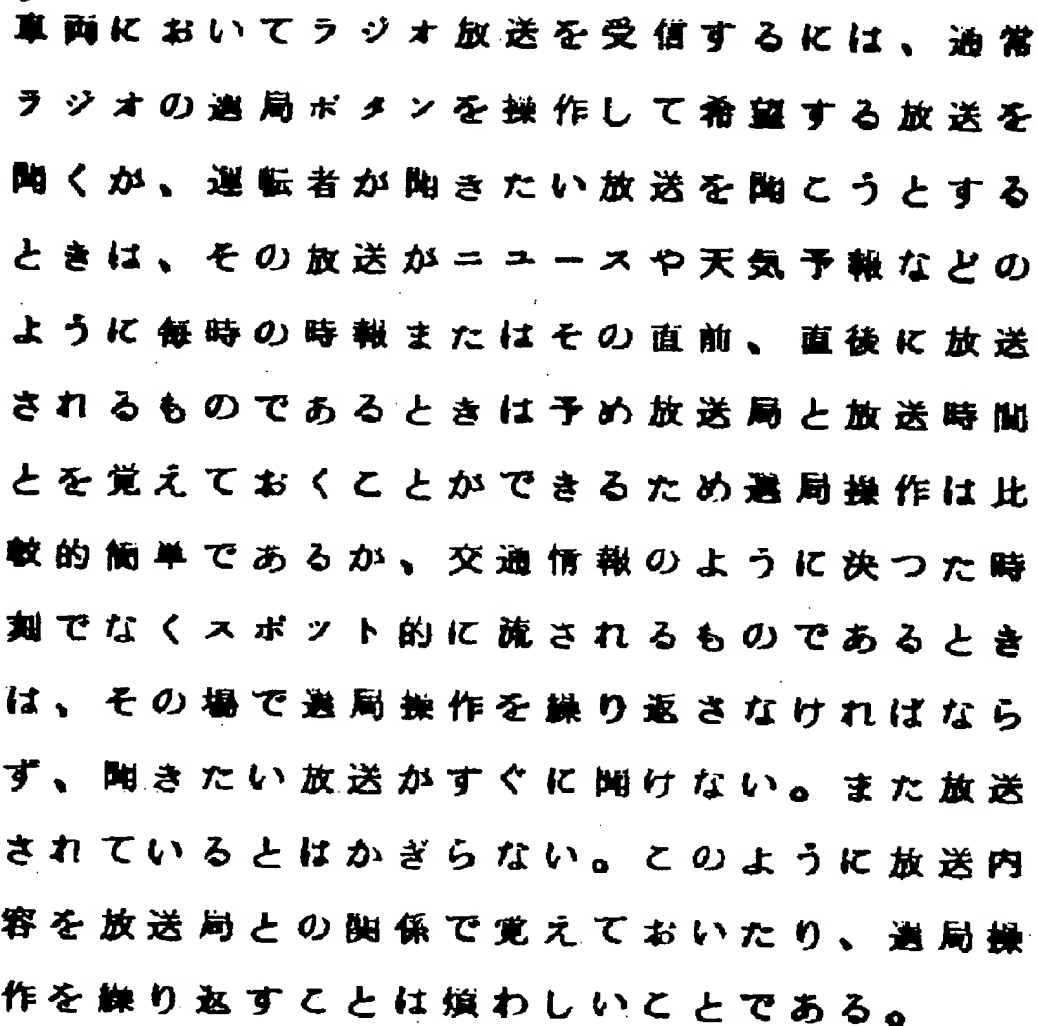 車両においてラジオ放送を受信するには、通常
ラジオの選局ボタンを操作して希望する放送を
聞くが、運転者が聞きたい放送を聞こうとする
ときは、その放送がニュースや天気予報などの
ように毎時の時報またはその直前、直後に放送
されるものであるときは予め放送局と放送時間
とを覚えておくことができるため選局操作は比
較的簡単であるが、交通情報のように決つた時
刻でなくスポット的に流されるものであるとき
は、その場で選局操作を繰り返さなければなら
ず、聞きたい放送がすぐに聞けない。また放送
されているとはかぎらない。このように放送内
容を放送局との関係で覚えておいたり、選局操
作を繰り返すことは煩わしいことである。